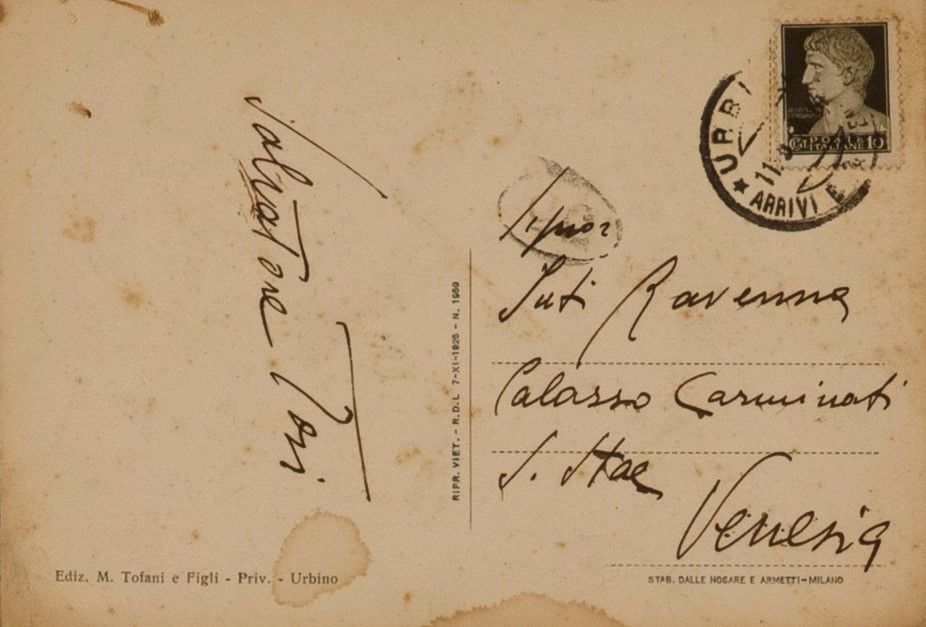 Salvatore Tosi
Signor
Juti Ravenna
Palazzo Carminati
S. Stae
Venezia
RIPR. VIET. - R.D.L. 7-XI-1925 - N. 1950
Ediz. M. Tofani e Figli - Priv. - Urbino
STAB. DALLE NOGARE E ARMETTI-MILANO
POSTE
ITALIANE 10
URBI
11
ARRIVI